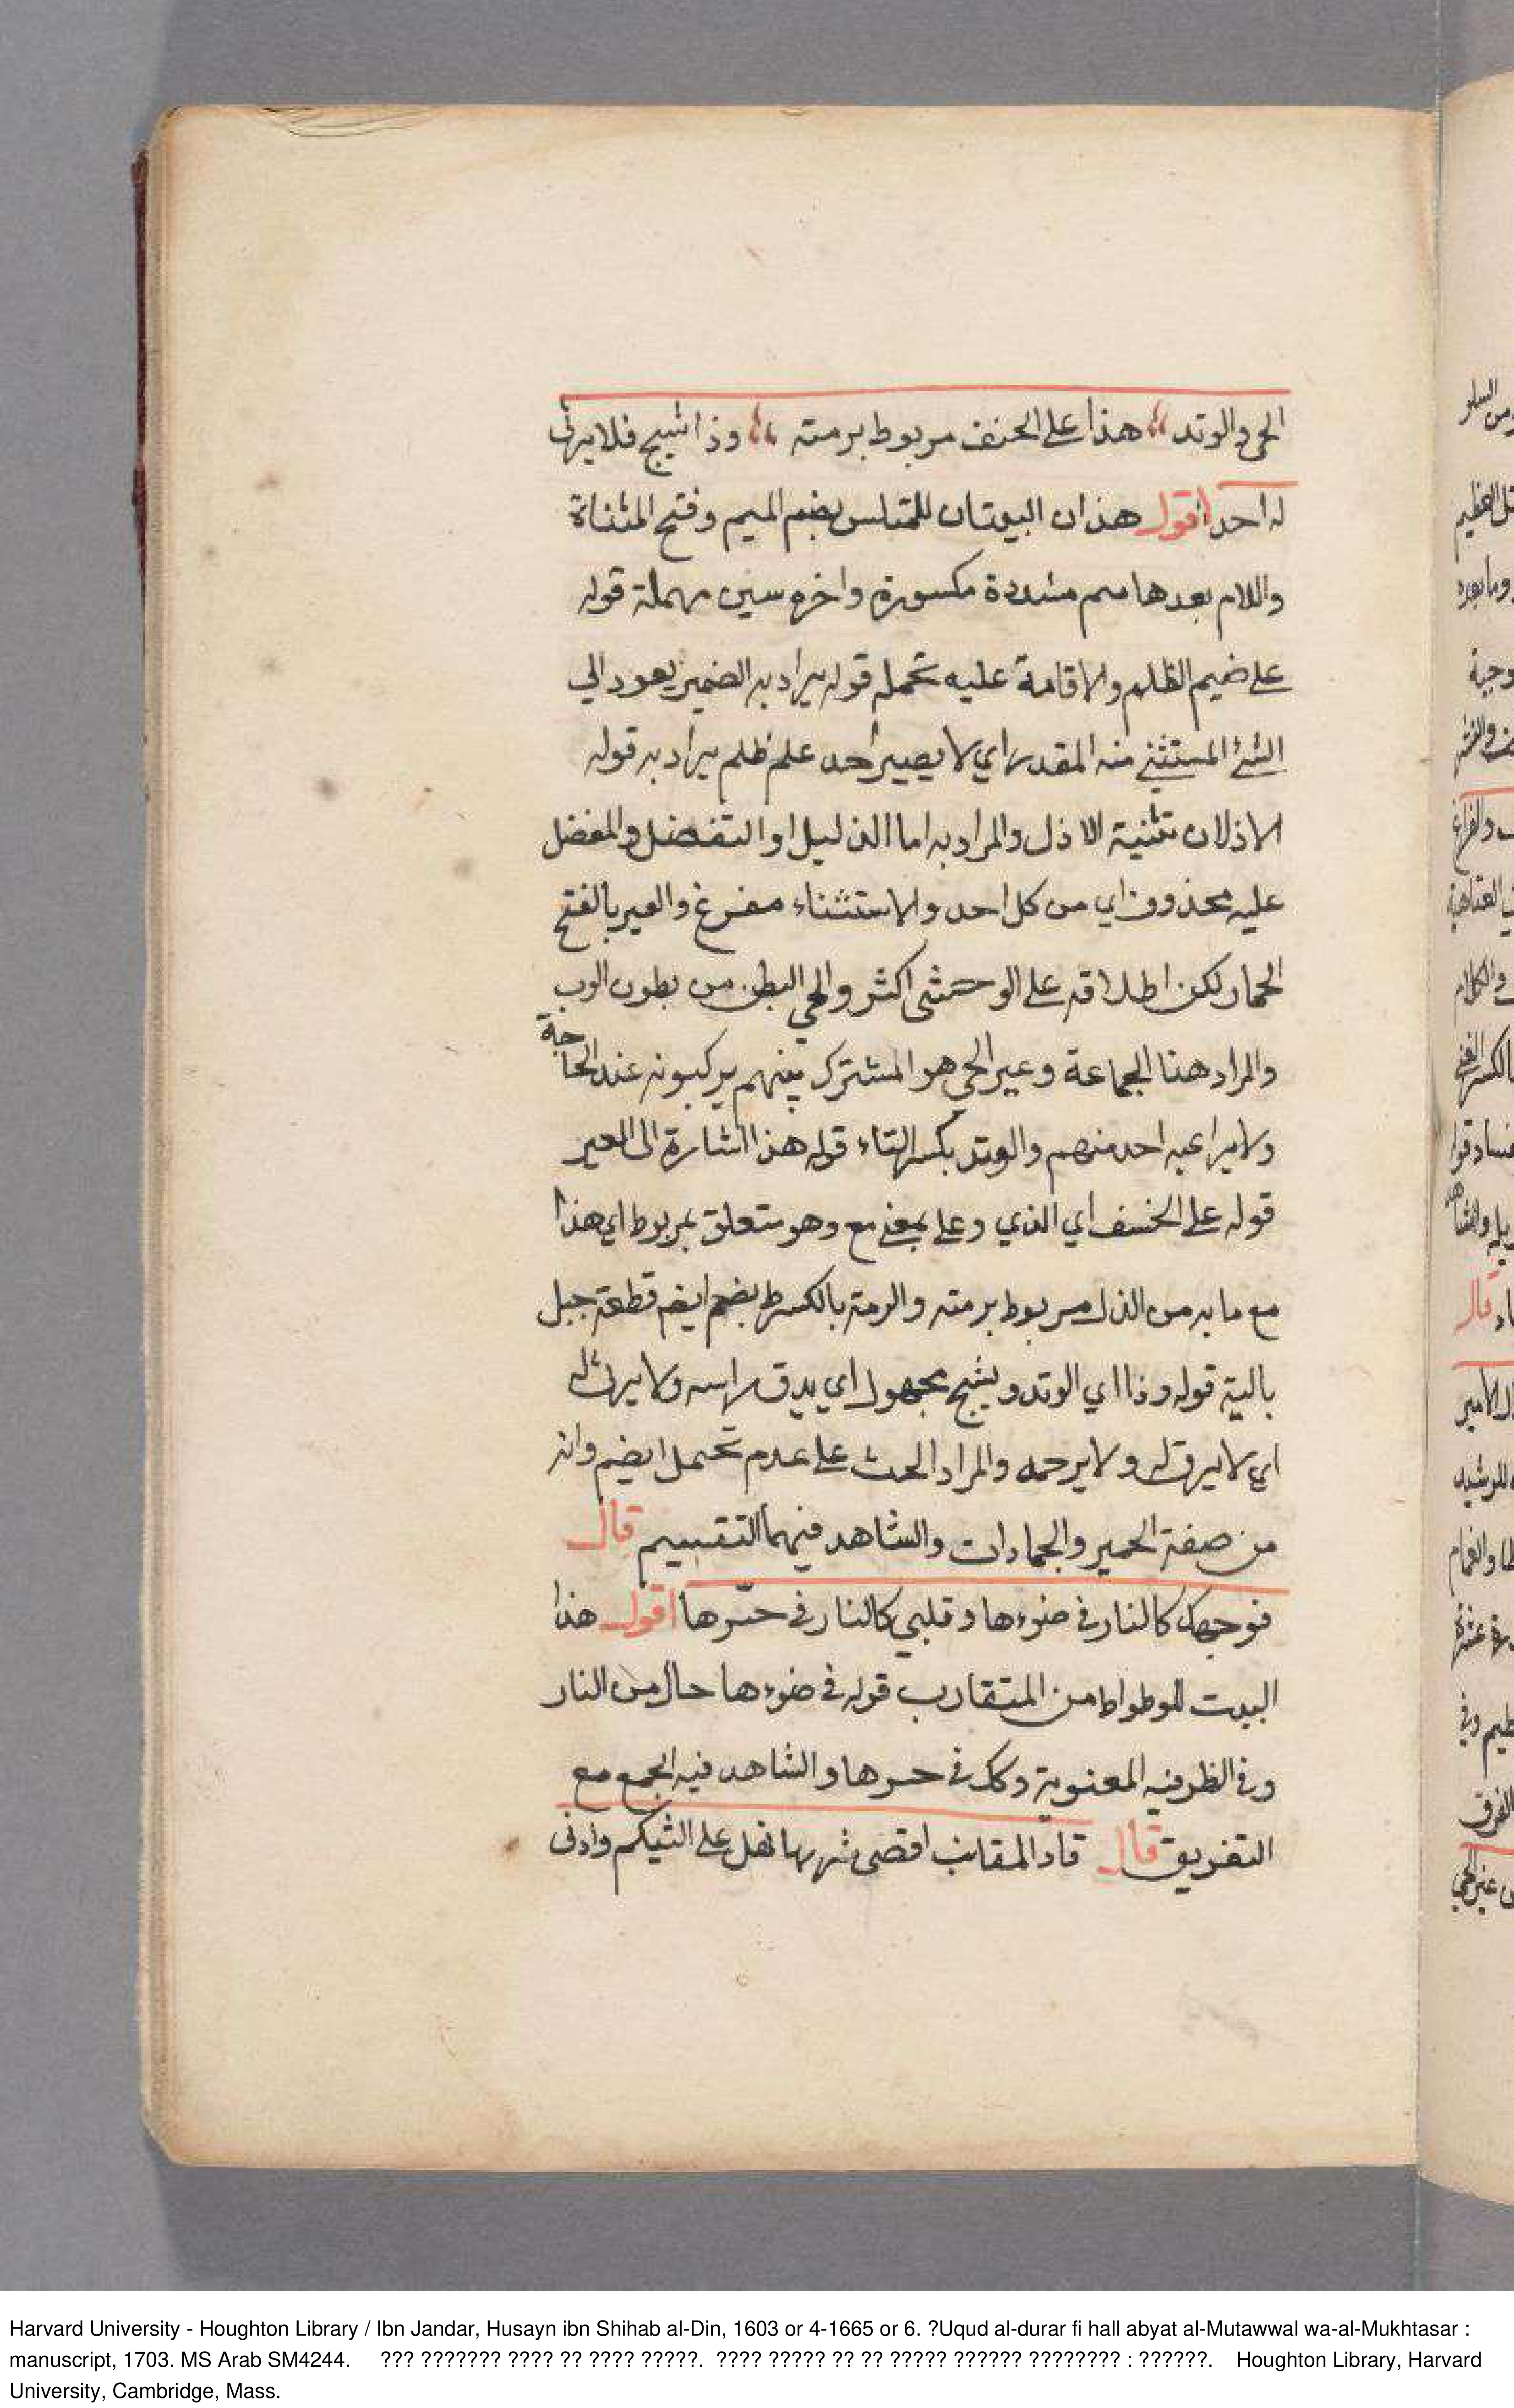 الحي والوتد هذا على الخسف مربوط برمته وذا يشج فلا يرثي
له احد اقول هذان البيتان للمتلمس بضم الميم وفتح المثناة
واللام بعدها ميم مشددة مكسورة واخره سين مهملة قوله
على ضيم الظلم والاقامة عليه تحمله قوله يراد به الضمير يعود الي
الشئ المستثني منه المقدر اي لا يصير احد علم ظلم يراد به قوله
الاذلان تثنية الاذل والمراد به اما الذليل او التفضل والمفضل
عليه محذوف اي من كل احد والاستثناء مفرغ والعير بالفتح
الحمار لكن اطلاقه على الوحشي اكثر والحي البطن من بطون
والمراد هنا الجماعة وعير الحي هو المشترك بينهم يركبونه عند الحاجة
ولا يراعيه احد منهم والوتد بكسر التاء قوله هذا اشارة الى العير
قوله على الخسف اي الذي وعلى بمعني مع وهو متعلق بمربوط اي هذا
مع ما به من الذل مربوط برمته والرمة بالكسر بضم ايضم قطعة حبل
بالية قوله وذا اي الوتد ويشج مجهول اي يدق راسه ولا يرثى له
اي لا يرق له ولا يرحمه والمراد الحث على عدم تحمل وانه
من صفة الحمير والجمادات والشاهد فيهما التقسيم قال
فوجهك كالنار في ضوءها وقلبي كالنار في حرها اقول هذا
البيت للوطواط من المتقارب قوله في ضوءها حال من النار
وفي الظرفيه المعنوية وكك في حرها والشاهد فيه الجمع مع
التفريق قال قاد المقانب اقصى شربها نهل على الشكيم وادنى
Harvard University - Houghton Library / Ibn Jandar, Husayn ibn Shihab al-Din, 1603 or 4-1665 or 6. ?Uqud al-durar fi hall abyat al-Mutawwal wa-al-Mukhtasar :
manuscript, 1703. MS Arab SM4244. ??? ??????? ???? ?? ???? ?????. ???? ????? ?? ?? ????? ?????? ???????? : ??????. Houghton Library, Harvard
University, Cambridge, Mass.